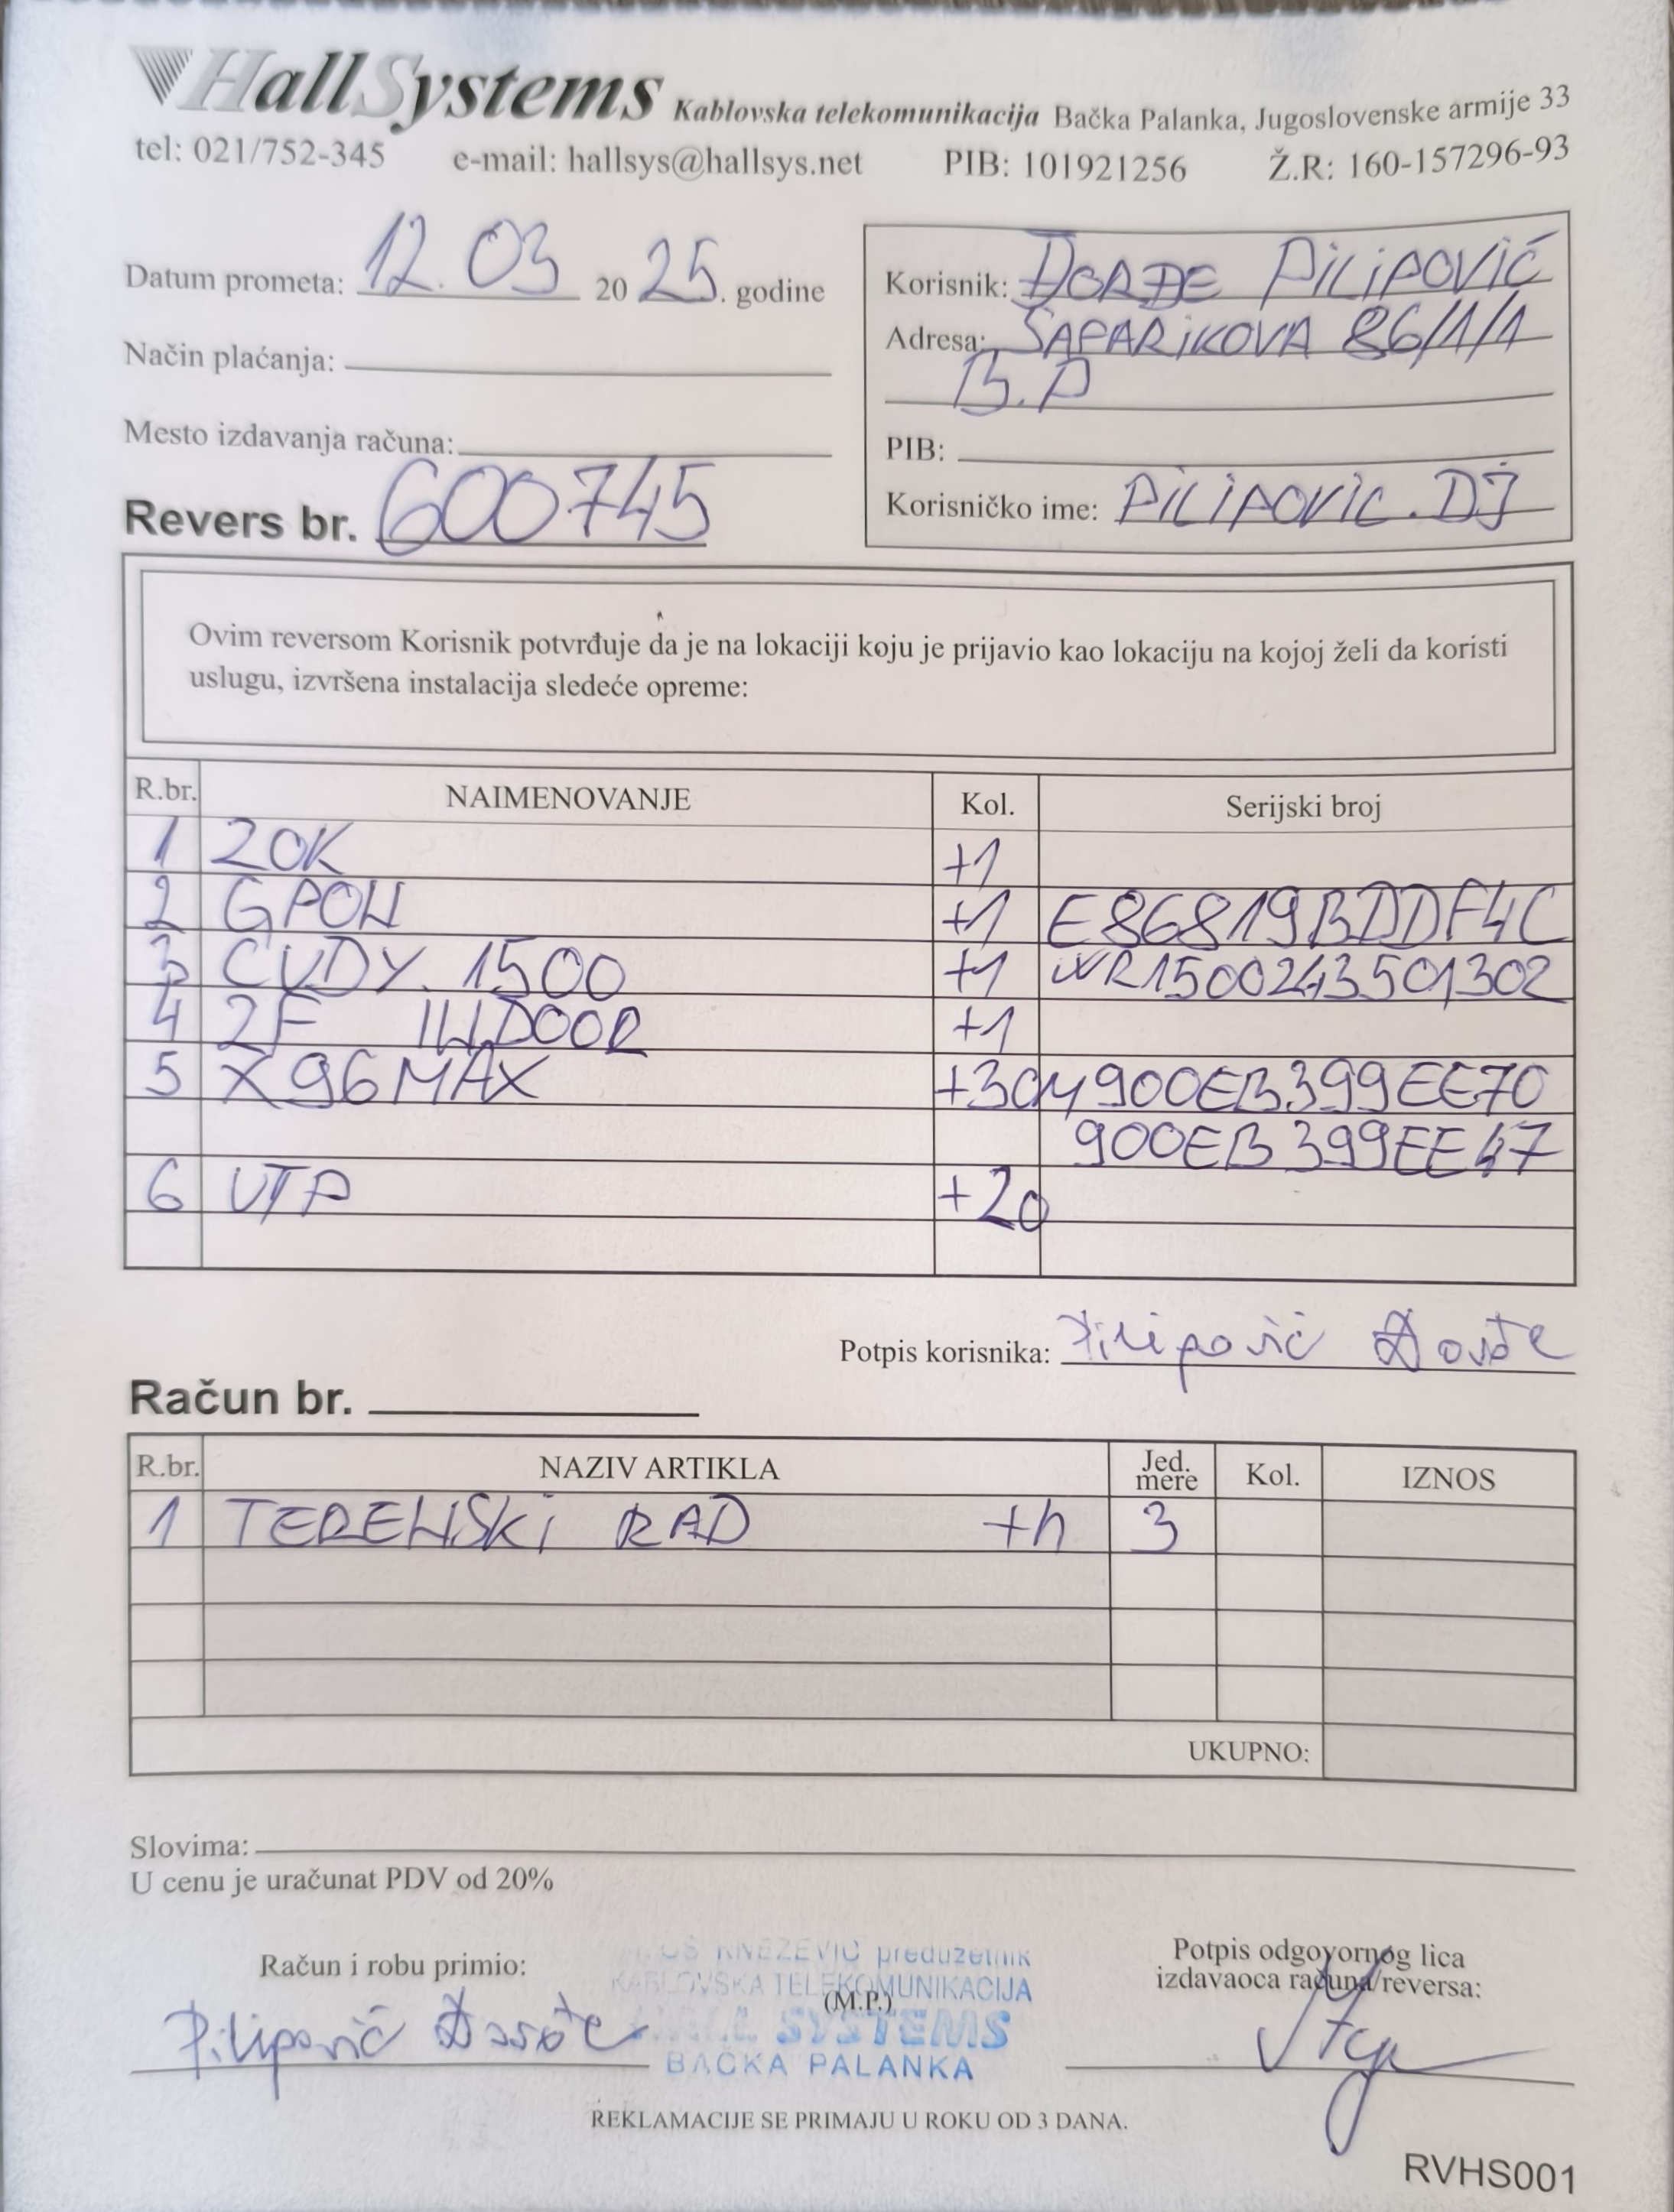 HallSystems Kablovska telekomunikacija Bačka Palanka, Jugoslovenske armije 33
tel: 021/752-345 e-mail: hallsys@hallsys.net PIB: 101921256 Ž.R: 160-157296-93
Datum prometa: 12.03 2025. godine
Način plaćanja:
Mesto izdavanja računa:
Revers br. 600745
Korisnik: ĐORĐE PILIPOVIĆ
Adresa: ŠAFARIKOVA 86/1/1
B.P
PIB:
Korisničko ime: PILIPOVIC.DJ
Ovim reversom Korisnik potvrđuje da je na lokaciji koju je prijavio kao lokaciju na kojoj želi da koristi
uslugu, izvršena instalacija sledeće opreme:
R.br. NAIMENOVANJE Kol. Serijski broj
1 ZOK +1
2 GPON +1 E86819BDDF4C
3 CUDY. 1500 +1 WR1500243501302
4 2F INDOOR +1
5 X96MAX 900EB399EE70
900EB399EE47
6 UTP +20
Potpis korisnika: Pilipović Đorđe
Račun br.
R.br. NAZIV ARTIKLA Jed. mere Kol. IZNOS
1 TERENSKI RAD +h 3
UKUPNO:
Slovima:
U cenu je uračunat PDV od 20%
Račun i robu primio:
Pilipović Đorđe
KNEŽEVIĆ preduzetnik
KABLOVSKA TELEKOMUNIKACIJA
(M.P.)
HALL SYSTEMS
BAČKA PALANKA
Potpis odgovornog lica
izdavaoca računa/reversa:
REKLAMACIJE SE PRIMAJU U ROKU OD 3 DANA.
RVHS001